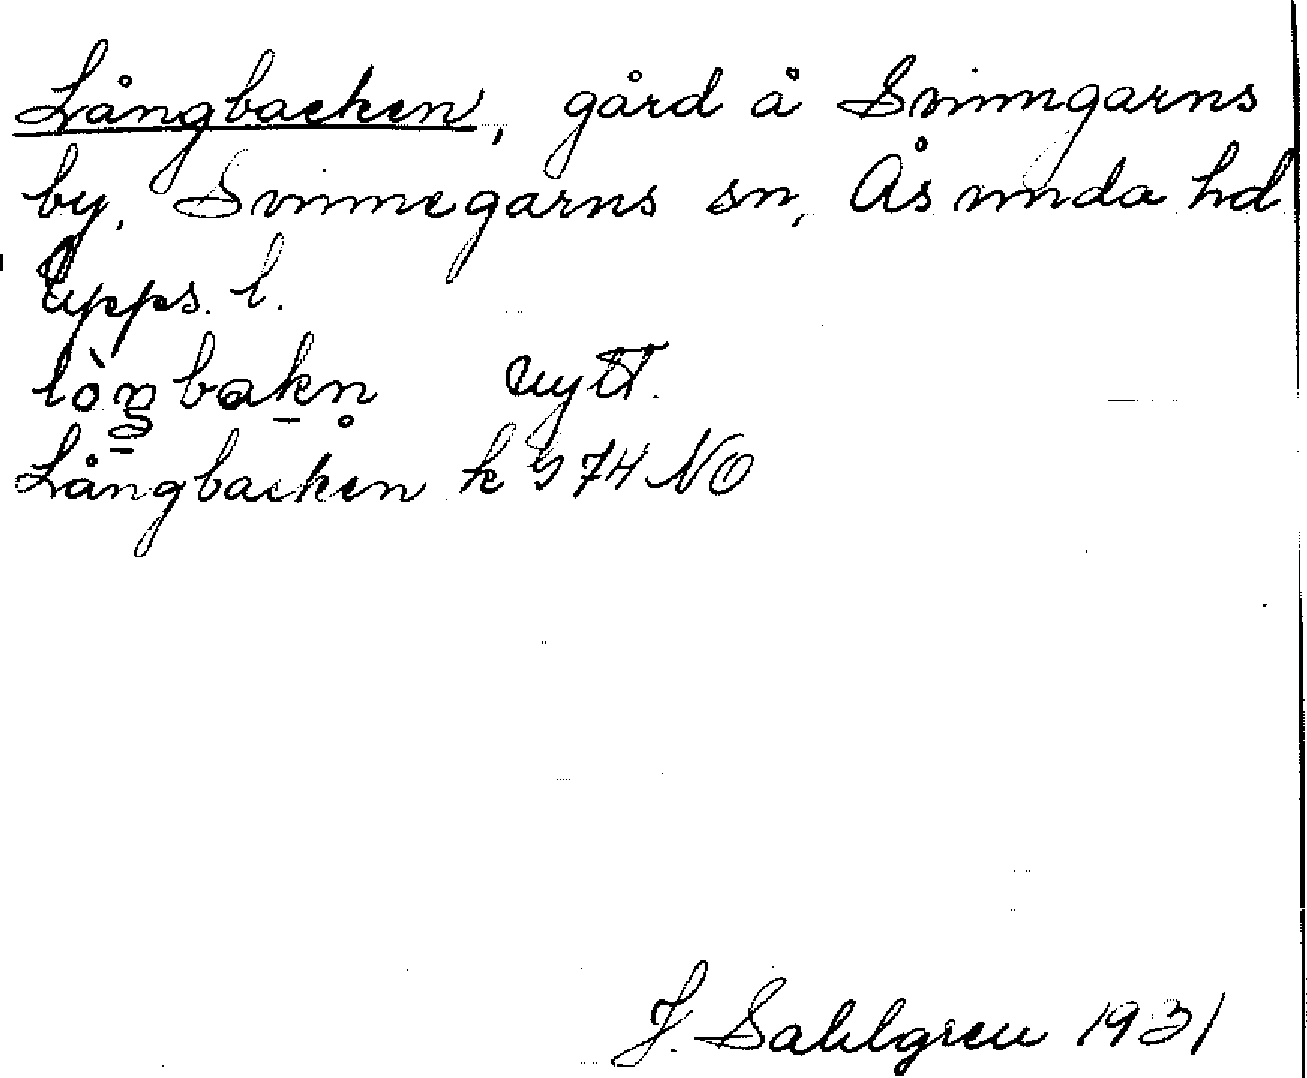 Långbacken, gård å Svinngarns
by, Svinnegarns sn, Åsunda hd
Upps. l.
lòŋbakn̥ uytt.
Långbacken k 974 NO
J. Sahlgren 1931